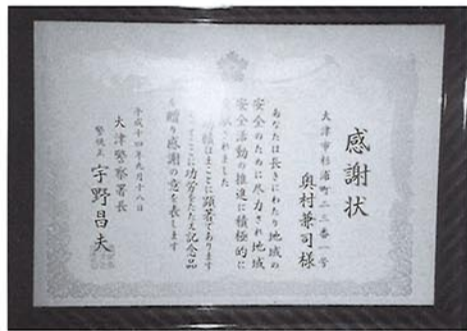 感謝状
大津市杉浦町二三番一号
奥村兼司様
あなたは長きにわたり地域の
安全のために尽力され地域
安全活動の推進に積極的に
されました
績はまことに顕著であります
ここに功労をたたえ記念品
贈り感謝の意を表します
平成十四年九月十八日
大津警察署長
警視正 宇野昌夫